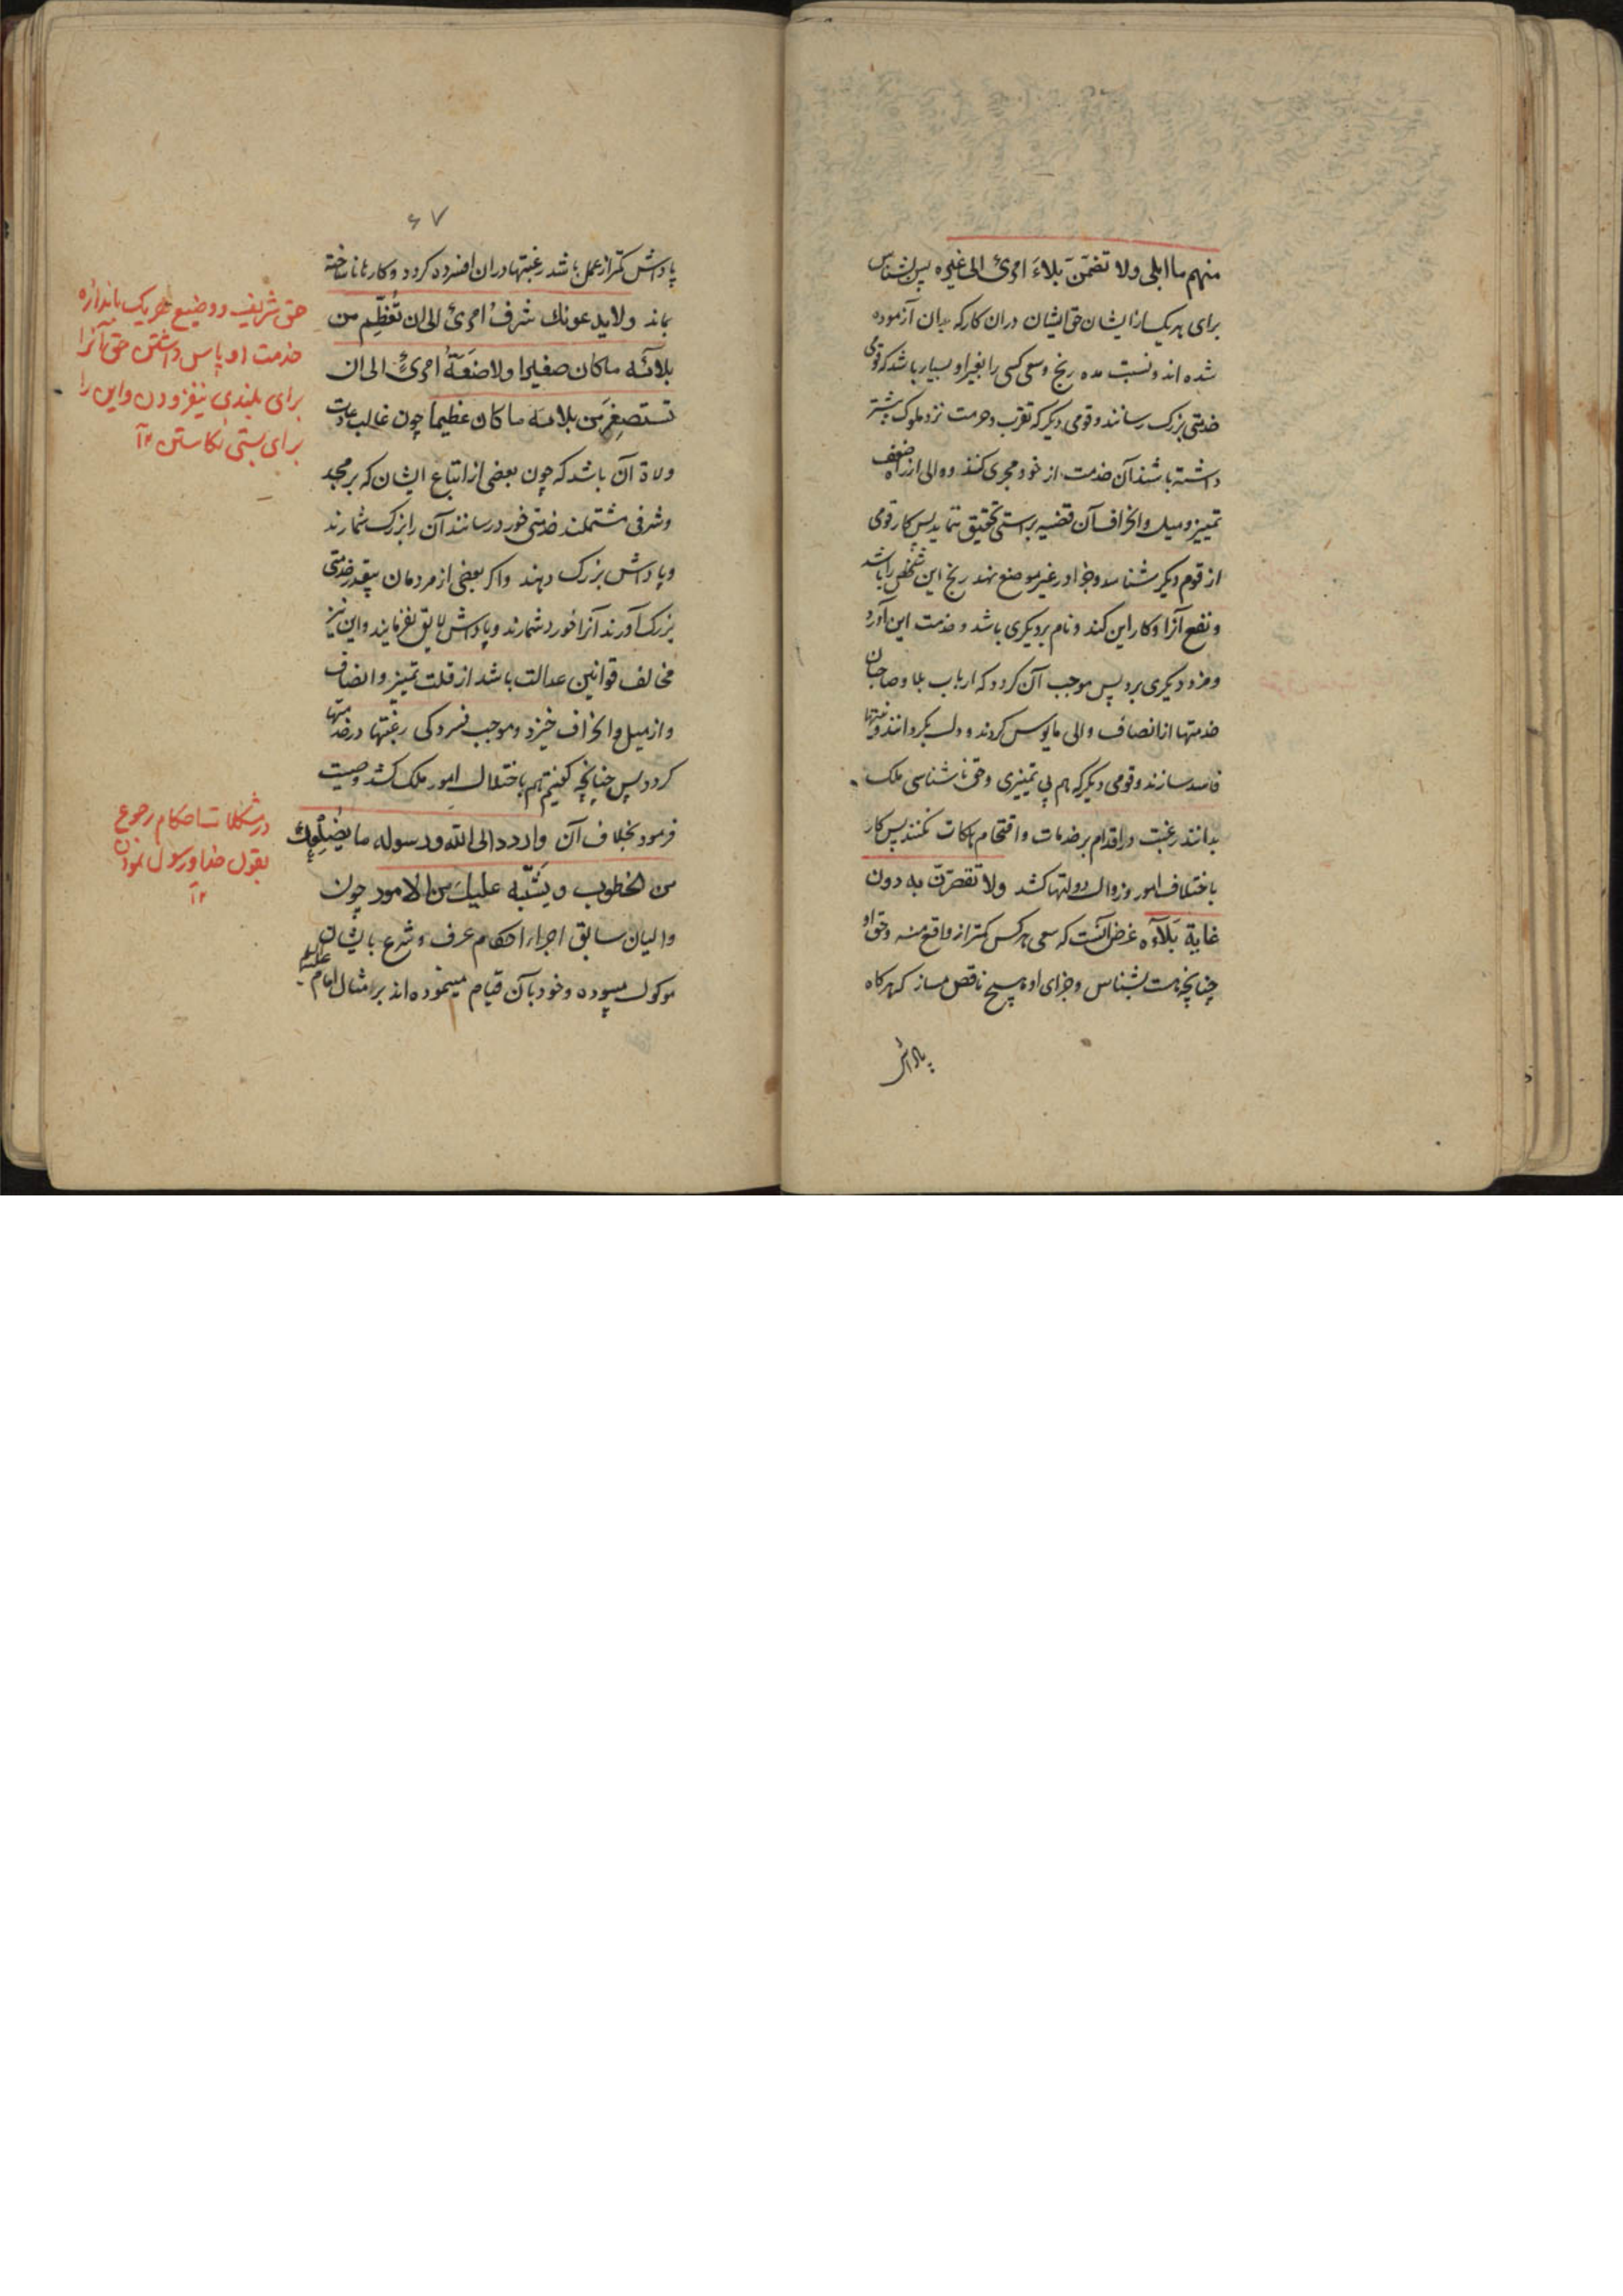 منهم ما ابلی ولا تضمّنَّ بلاءَ امرئ الی غیره پس بشناس
برای هر یک از ایشان حق ایشان دران کار که بدان آزموده
شده اند و نسبت مده رنج و سعی کسی را بغیر او بسیار باشد که قومی
خدمتی بزرک رسانند و قومی دیکر که تقرب و حرمت نزد ملوک بیشتر
داشته باشند آن خدمت از خود مجری کنند و والی از راه ضعف
تمییز و میل و انحراف آن قضیه براستی تحقیق ننماید پس کار قومی
از قوم دیکر شناسد و جزا در غیر موضع نهد رنج این شخص را باشد
و نفع آنرا و کار این کند و نام بردیکری باشد و خدمت این آورد
و مزد دیکری برد پس موجب آن کردد که ارباب بلا و صاحبان
خدمتها از انصاف والی مایوس کردند و دل بکردانند و نیتها
فاسد سازند و قومی دیکر که هم بی تمییزی و حق ناشناسی ملک
بدانند رغبت در اقدام بر خدمات و اقتحام هلکات نکنند پس کار
باختلاف امور و زوال دولتها کشد ولا تقصّرنّ به دون
غایة بَلآءه غرض آنست که سعی هر کس کمتر از واقع منه و حق او
چنانچه هست بشناس و جزای او هیچ ناقص مساز که هر کاه
پاداش
۶۷
پاداش کمتر از عمل باشد رغبتها دران افسرده کردد و کارها ناساخته
بماند ولا یدعونك شرفُ امرئ الی ان تُعَظِّم من
بلائه ماکان صغیرا ولا ضَعَةُ امرئ الی ان
تستصغِر من بلائه ما کان عظیما چون غالب عادت
ولاة آن باشد که چون بعضی از اتباع ایشان که بر مجد
و شرفی مشتملند خدمتی خورد رسانند آن را بزرک شمارند
و پاداش بزرک دهند و اکر بعضی از مردمان بیقدر خدمتی
بزرک آورند آنرا خورد شمارند و پاداش لایق نفرمایند و این نیز
مخالف قوانین عدالت باشد از قلت تمییز و انصاف
و از میل و انحراف خیزد و موجب فسردکی رغبتها در خدمتها
کردد پس چنانچه کفتیم هم باختلال امور ملک کشد وصیت
فرمود بخلاف آن واردد الی الله ورسوله ما یُضلِعُك
من الخطوب ویَشتَبِه علیك من الامور چون
والیان سابق اجراء احکام عرف و شرع بایشان
موکول میبوده و خود بآن قیام مینموده اند بر امثال امام علیه السلام
حق شریف و وضیع هر یک باندازه
خدمت او پاس داشتن حق آنرا
برای بلندی نیفزودن و این را
برای پستی نکاستن ۱۲
در مشکلات احکام رجوع
بقول خدا و رسول نمودن
۱۲